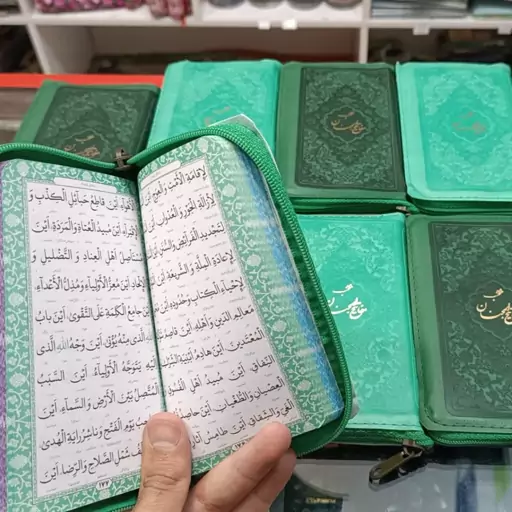 لِإِقَامَةِ الْأَمْتِ وَ الْعِوَجِ
لِإِزَالَةِ الْجَوْرِ وَ الْعُدْوَانِ، أَيْنَ
لِتَجْدِيدِ الْفَرَآئِضِ وَ السُّنَنِ، أَيْنَ
لِإِعَادَةِ الْمِلَّةِ وَ الشَّرِيعَةِ، أَيْنَ
لِإِحْيَاءِ الْكِتَابِ وَ حُدُودِهِ، أَيْنَ
مَعَالِمِ الدِّينِ وَ أَهْلِهِ، أَيْنَ قَاصِمُ
الْمُعْتَدِينَ، أَيْنَ هَادِمُ أَبْنِيَةِ الشِّرْكِ
النِّفَاقِ، أَيْنَ مُبِيدُ أَهْلِ الْفُسُوقِ
الْعِصْيَانِ وَ الطُّغْيَانِ، أَيْنَ حَاصِدُ
الْغَيِّ وَ الشِّقَاقِ، أَيْنَ طَامِسُ آثَارِ
أَيْنَ قَاطِعُ حَبَآئِلِ الْكِذْبِ وَ
الْإِفْتِرَاءِ، أَيْنَ مُبِيدُ الْعُتَاةِ وَ الْمَرَدَةِ، أَيْنَ
مُسْتَأْصِلُ أَهْلِ الْعِنَادِ وَ التَّضْلِيلِ وَ
الْإِلْحَادِ، أَيْنَ مُعِزُّ الْأَوْلِيَاءِ وَ مُذِلُّ الْأَعْدَاءِ،
أَيْنَ جَامِعُ الْكَلِمَةِ عَلَى التَّقْوَى، أَيْنَ بَابُ
اللهِ الَّذِي مِنْهُ يُؤْتَى، أَيْنَ وَجْهُ اللهِ الَّذِي
إِلَيْهِ يَتَوَجَّهُ الْأَوْلِيَاءُ، أَيْنَ السَّبَبُ
الْمُتَّصِلُ بَيْنَ الْأَرْضِ وَ السَّمَاءِ، أَيْنَ
صَاحِبُ يَوْمِ الْفَتْحِ وَ نَاشِرُ رَايَةِ الْهُدَى،
مُؤَلِّفُ شَمْلِ الصَّلَاحِ وَ الرِّضَا، أَيْنَ
١٢٢